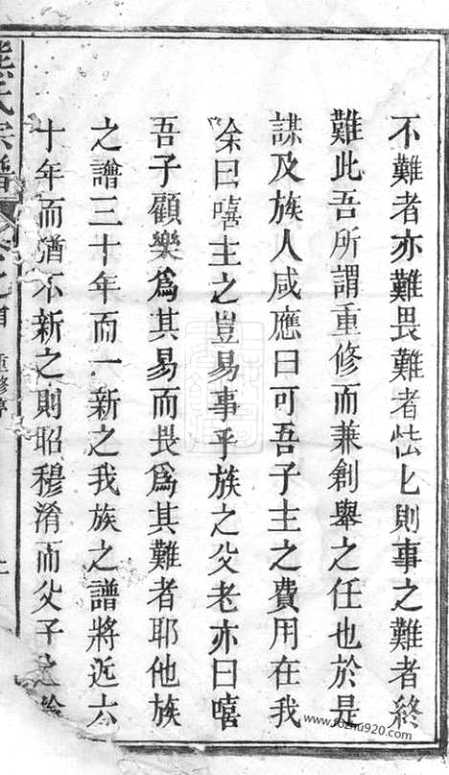 不難者亦難畏難者怯匕則事之難者終
難此吾所謂重修而兼創舉之任也於是
謀及族人咸應曰可吾子主之費用在我
余曰嘻主之豈易事乎族之父老亦曰嘻
吾子顧樂爲其易而畏爲其難者耶他族
之譜三十年而一新之我族之譜將近六
十年而猶不新之則昭穆淆而父子之
氏宗譜 卷之首 重修序
www.fozhu920.com